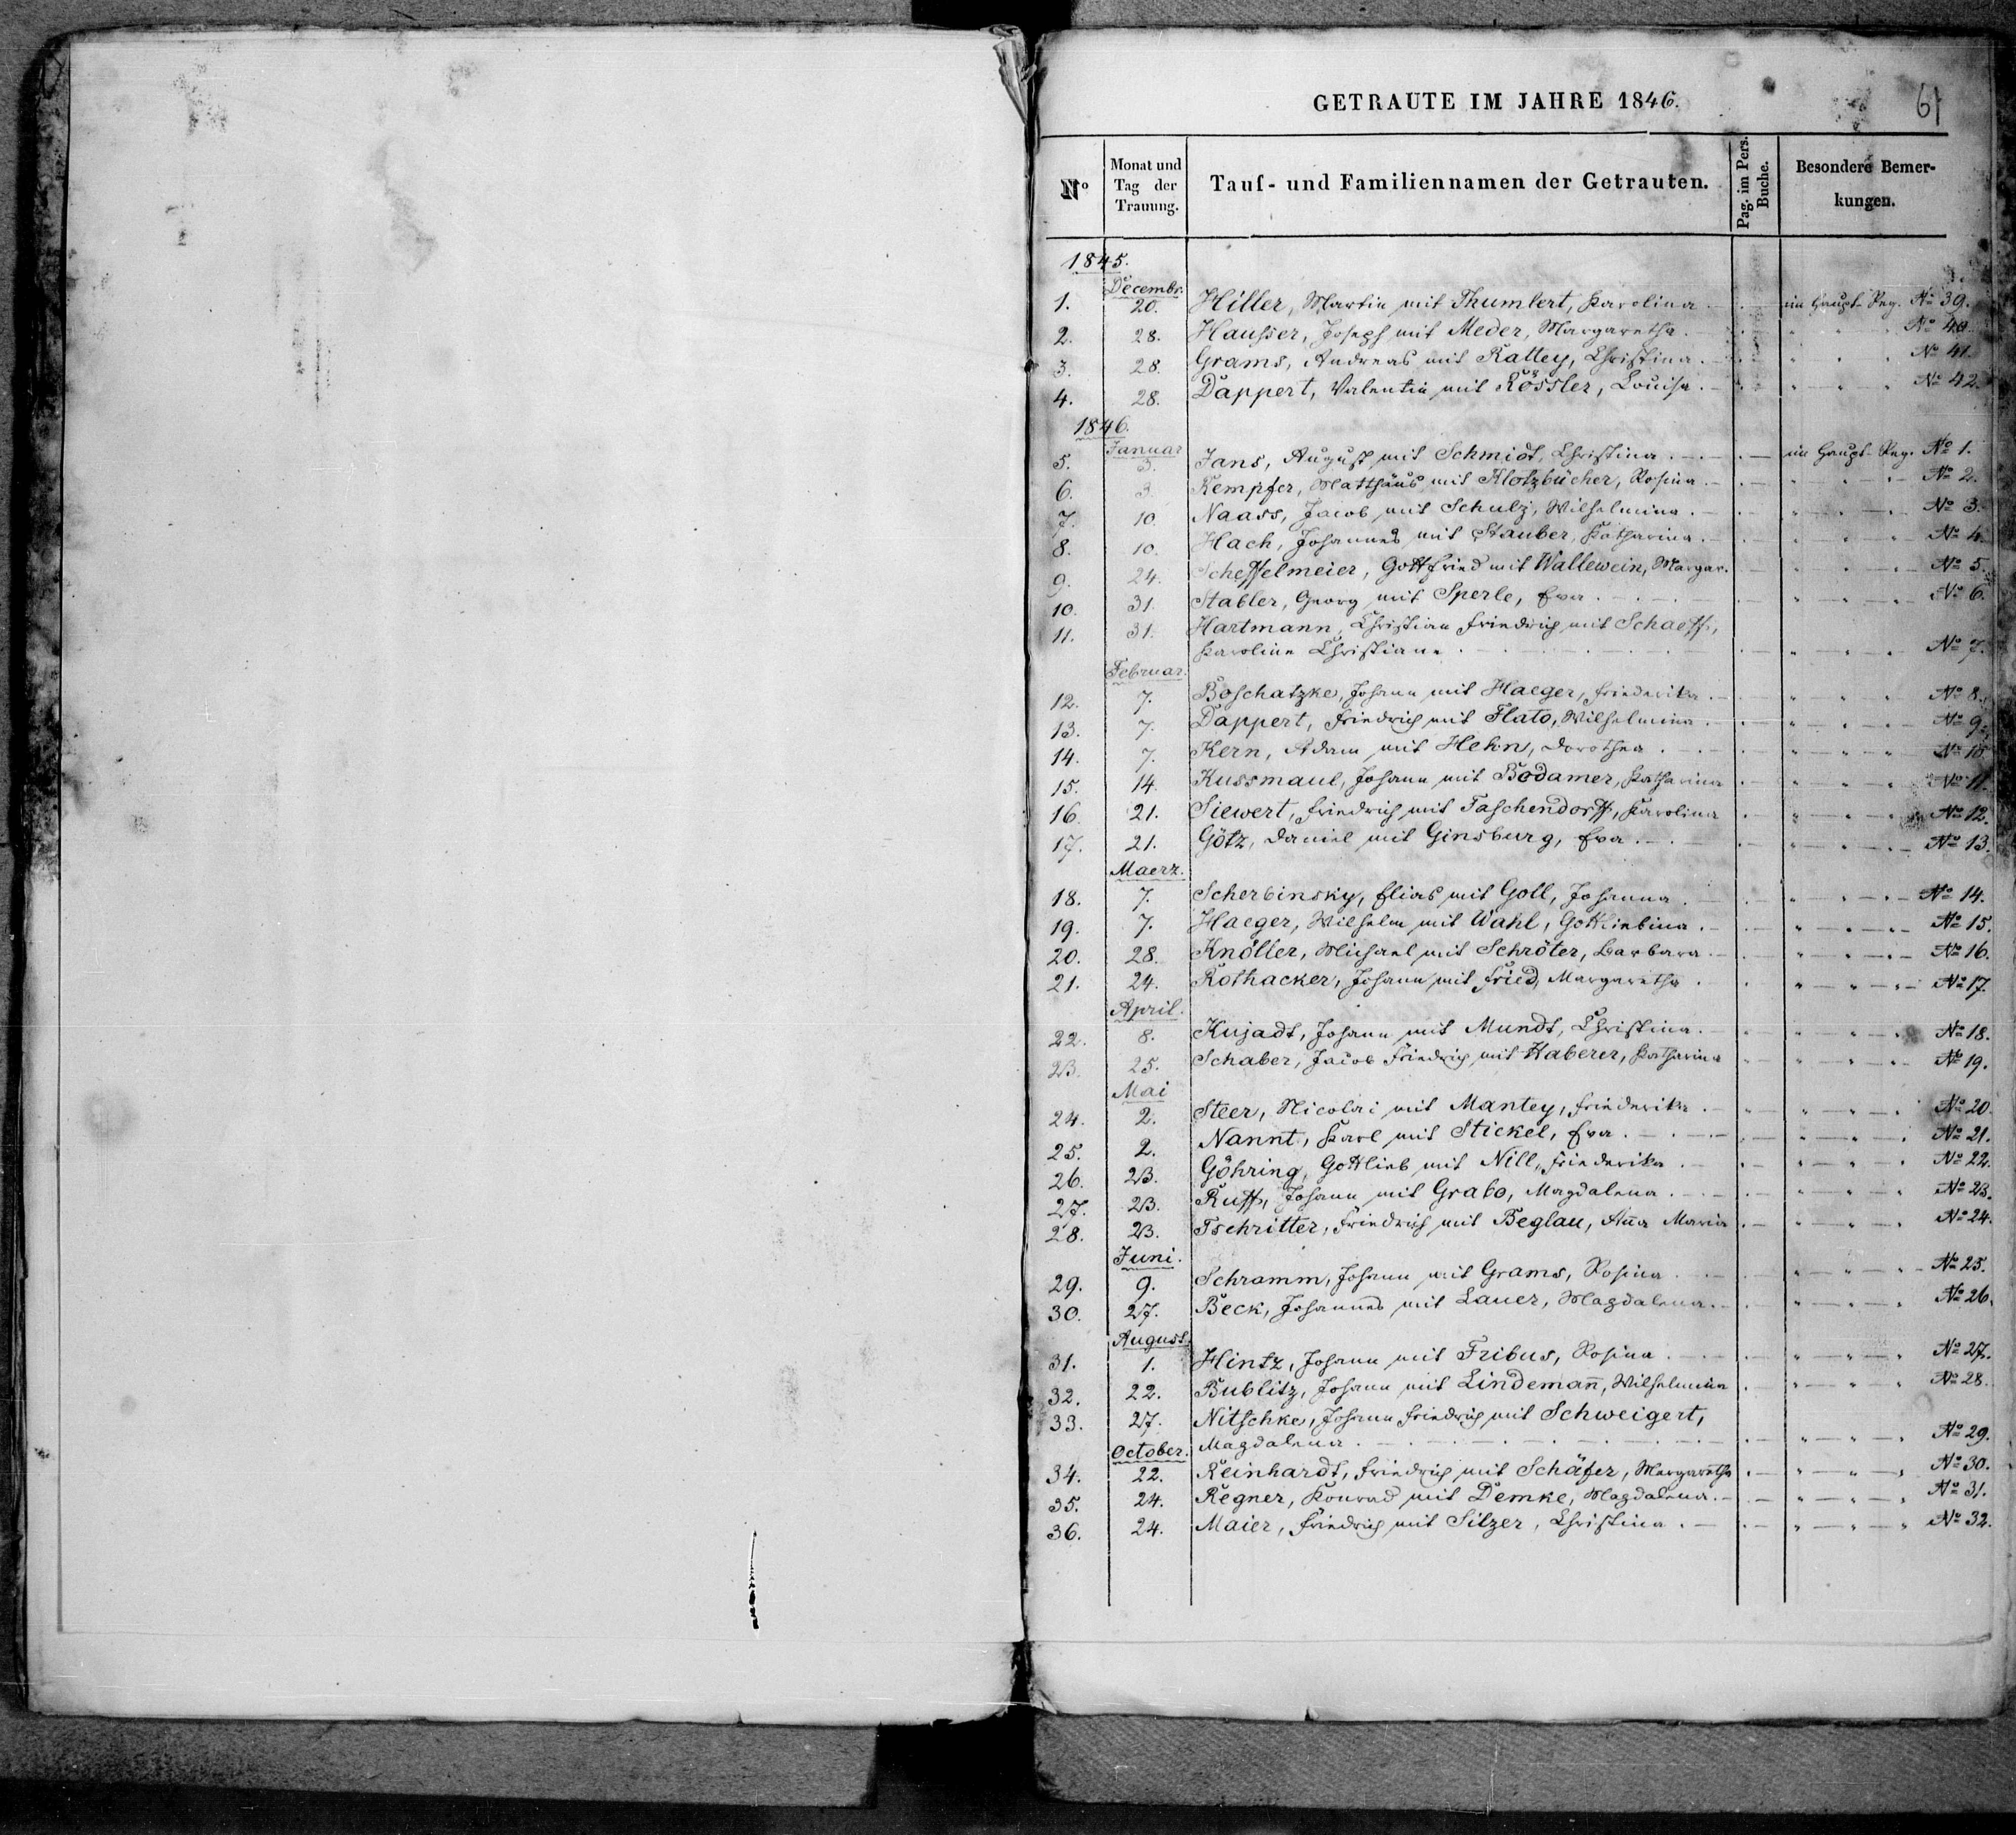 GETRAUTE IM JAHRE 1846.
61
N° Monat und Tag der Trauung. Tauf- und Familiennamen der Getrauten. Pag. im Pers. Buche. Besondere Bemerkungen.
1845.
Decembr.
1. 20. Hiller, Martin mit Thumlert, Karolina . im Haupt-Reg. No 39.
2. 28. Hausser, Joseph mit Meder, Margaretha . " " " No 40.
3. 28. Grams, Andreas mit Rattey, Christina . " " " No 41.
4. 28. Dappert, Valentin mit Rössler, Louisa . " " " No 42.
1846.
Januar
5. 3. Jans, August mit Schmidt, Christina . im Haupt-Reg. No 1.
6. 3. Kempfer, Matthäus mit Klotzbücher, Rosina . " " " No 2.
7. 10. Naass, Jacob mit Schulz, Wilhelmina . " " " No 3.
8. 10. Hach, Johannes mit Stauber, Katharina . " " " No 4.
9. 24. Scheffelmeier, Gottfried mit Wallewein, Margar. " " " No 5.
10. 31. Stabler, Georg mit Sperle, Eva . " " " No 6.
11. 31. Hartmann, Christian Friedrich mit Schaeff,
Karoline Christiane . " " " No 7.
Februar.
12. 7. Boschatzke, Johann mit Haeger, Friederika . " " " No 8.
13. 7. Dappert, Friedrich mit Flato, Wilhelmina . " " " No 9.
14. 7. Kern, Adam mit Hehn, Dorothea . " " " No 10
15. 14. Kussmaul, Johann mit Bodamer, Katharina " " " No 11.
16. 21. Siewert, Friedrich mit Taschendorff, Karolina " " " No 12.
17. 21. Götz, Daniel mit Ginsburg, Eva . " " " No 13.
Maerz.
18. 7. Scherbinsky, Elias mit Goll, Johanna . " " " No 14.
19. 7. Haeger, Wilhelm mit Wahl, Gottliebina . " " " No 15.
20. 28. Knöller, Michael mit Schröter, Barbara . " " " No 16.
21. 24. Rothacker, Johann mit Fried, Margaretha . " " " No 17.
April.
22. 8. Kujadt, Johann mit Mundt, Christina . " " " No 18.
23. 25. Schaber, Jacob Friedrich mit Haberer, Katharina " " " No 19.
Mai
24. 2. Steer, Nicolai mit Mantey, Friederika . " " " No 20.
25. 2. Nannt, Karl mit Stickel, Eva . " " " No 21.
26. 23. Göhring, Gottlieb mit Nill, Friederika . " " " No 22.
27. 23. Ruff, Johann mit Grabo, Magdalena . " " " No 23.
28. 23. Tschritter, Friedrich mit Beglau, Anna Maria " " " No 24.
Juni.
29. 9. Schramm, Johann mit Grams, Rosina . " " " No 25.
30. 27. Beck, Johannes mit Lauer, Magdalena . " " " No 26.
August.
31. 1. Hintz, Johann mit Fribus, Rosina . " " " No 27.
32. 22. Bublitz, Johann mit Lindemañ, Wilhelmina " " " No 28.
33. 27. Nitschke, Johann Friedrich mit Schweigert,
Magdalena . " " " No 29.
October.
34. 22. Reinhardt, Friedrich mit Schäfer, Margaretha " " " No 30.
35. 24. Regner, Konrad mit Demke, Magdalena . " " " No 31.
36. 24. Maier, Friedrich mit Silzer, Christina . " " " No 32.